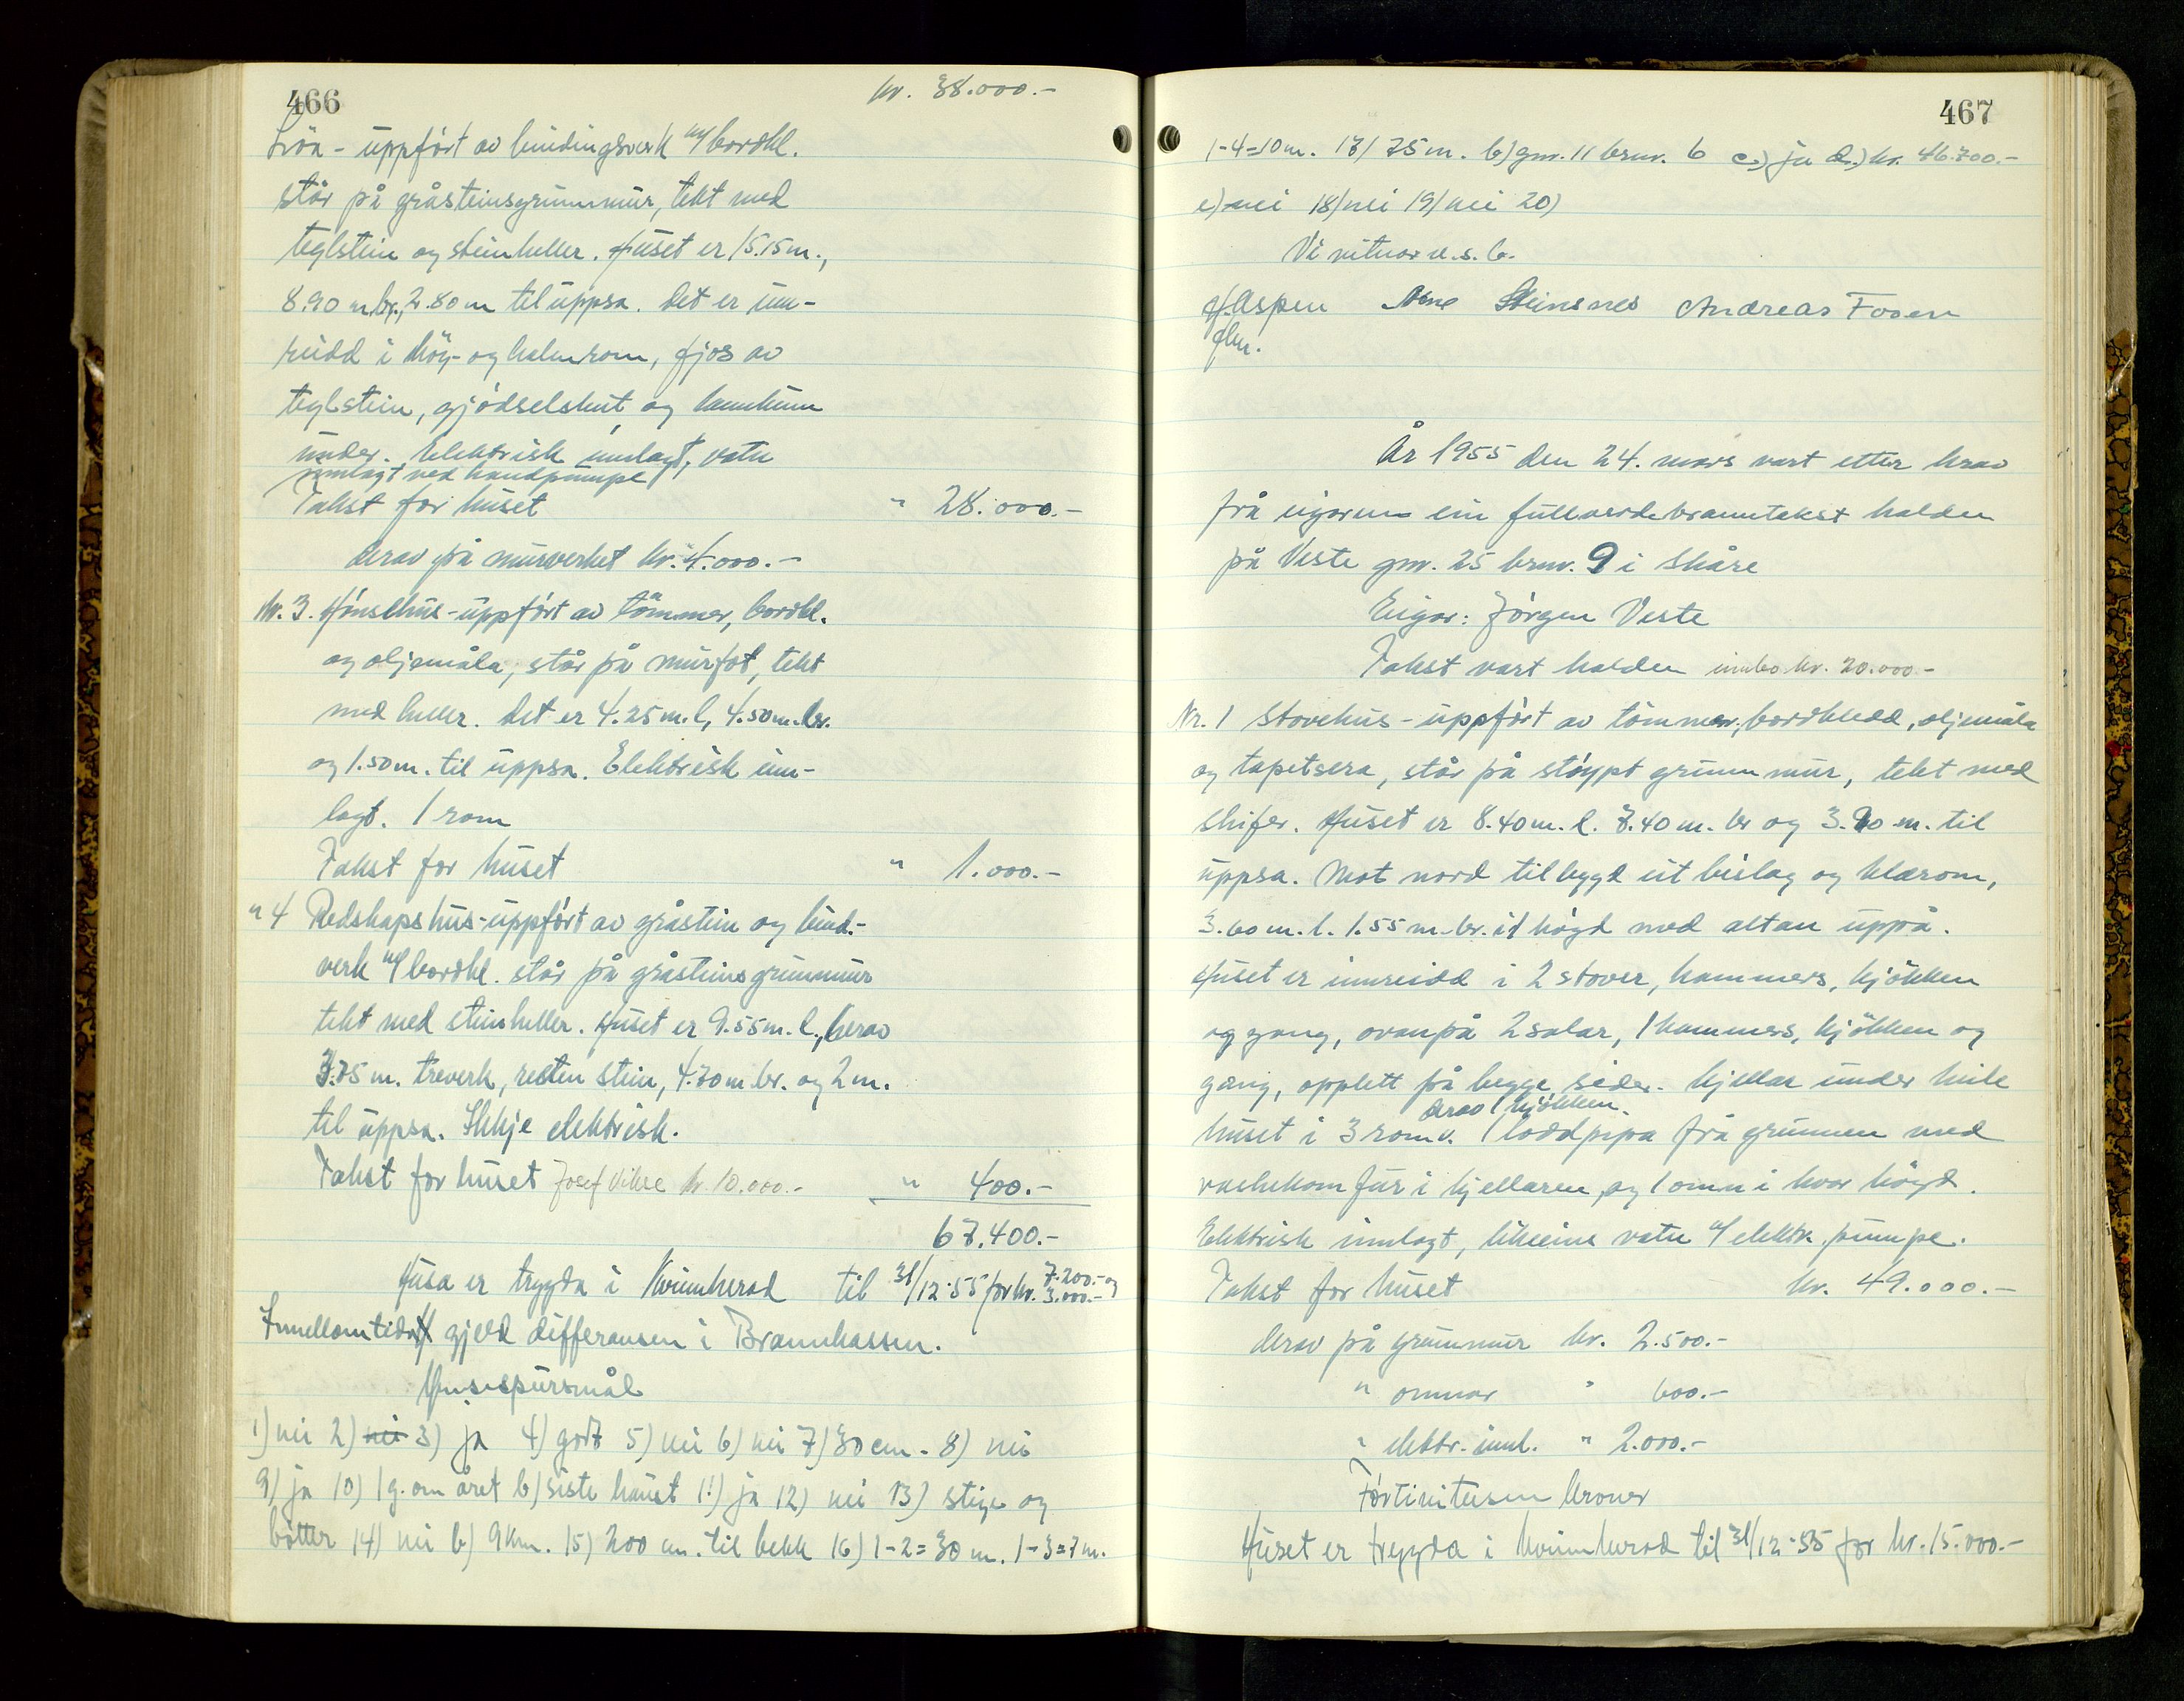 466
kr. 38.000.-
Löa - uppført av bindingsverk m/ bordkl.
står på gråsteinsgrunnmur, tekt med
teglstein og steinheller. Huset er 15.15 m.,
8.90 m. br., 2.80 m til uppsa. Det er inn-
reidd i höy- og halmrom, fjos av
teglstein, gjödselshut og landkum
under. Elektrisk innlagt, vatn
innlagt ved handpumpe
Takst for huset " 28.000.-
derav på murverket kr. 4.000.-
Nr. 3. Hönsehus - uppfört av tömmer, bordkl.
og oljemåla, står på murfot, tekt
med heller. Det er 4.25 m. l., 4.50 m. br.
og 1.50 m. til uppsa. Elektrisk inn-
lagt. 1 rom
Takst for huset " 1.000.-
" 4 Redskapshus - uppfört av gråstein og bind.-
verk m/ bordkl. står på gråsteinsgrunnmur
tekt med steinheller. Huset er 9.55 m. l., herav
3.75 m. treverk, resten stein, 4.70 m. br. og 2 m.
til uppsa. Ikkje elektrisk.
Takst for huset Josef Vikse kr. 10.000.- " 400.-
67.400.-
Husa er trygda i Kvinnherad til 31/12-55 for kr. 7.200.- og 3.000.-
Imellomtida gjeld differansen i Brannkassen.
Husespursmål
1) nei 2) nei 3) ja 4) godt 5) nei 6) nei 7) 30 cm. 8) nei
9) ja 10) 1 g. om året b) siste haust 11) ja 12) nei 13) stige og
bötter 14) nei b) 9 km. 15) 200 m. til bekk 16) 1-2 = 30 m. 1-3 = 7 m.
467
1-4 = 10 m. 17) 75 m. b) gnr. 11 brnr. 6 c.) ja d.) kr. 46.700.-
e) nei 18) nei 19) nei 20)
Vi vitnar u. s. b.
H. Aspen Arne Steinsnes Andreas Fosen
fbm.
År 1955 den 24. mars vart etter krav
frå eigaren ein fullverdebranntakst halden
på Veste gnr. 25 brnr. 9 i Skåre
Eigar: Jörgen Veste
Takst vart halden innbo kr. 20.000.-
Nr. 1 Stovehus - uppfört av tömmer, bordkledd, oljemåla
og tapetsera, står på stöypt grunnmur, tekt med
skifer. Huset er 8.40 m. l. 7.40 m. br og 3.90 m. til
uppsa. Mot nord tilbygd eit bislag og klærom,
3.60 m. l. 1.55 m. br. i 1 högd med altan uppå.
Huset er innreidd i 2 stover, kammers, kjökken
og gang, ovanpå 2 salar, 1 kammers, kjökken og
gang, opplett på begge sider. Kjellar under heile
derav 1 kjökken.
huset i 3 rom. 1 loddpipa frå grunnen med
vaskekomfur i kjellaren og 1 omn i kvar högd.
Elektrisk innlagt, likeeins vatn m/ elektr. pumpe.
Takst for huset kr. 49.000.-
derav på grunnmur kr. 2.500.-
" omnar " 600.-
" elektr. innl. " 2.000.-
Förtinitusen kroner
Huset er trygda i Kvinnherad til 31/12-55 for kr. 15.000.-